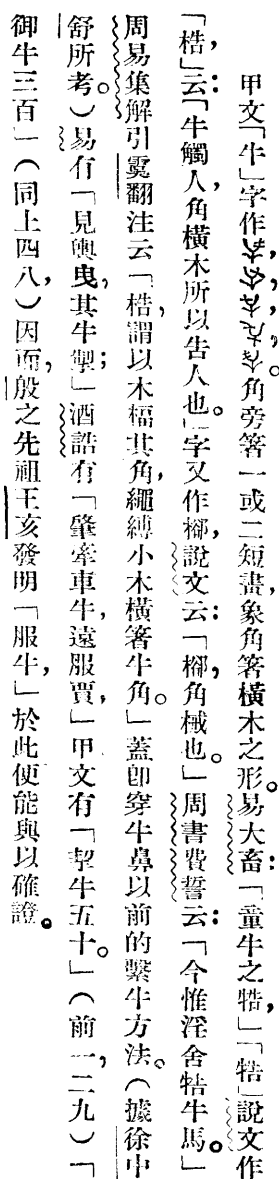 甲文「牛」字作，，，。角旁箸一或二短畫，象角箸橫木之形。易大畜：「童牛之牿，」「牿」說文作
「梏」云：「牛觸人，角橫木所以告人也。」字又作㮝，說文云：「㮝，角械也。」周書費誓云：「今惟淫舍牿牛馬。」
周易集解引虞翻注云「梏，謂以木楅其角，繩縛小木橫箸牛角。」蓋即穿牛鼻以前的繫牛方法。（據徐中
舒所考。）易有「見輿曳，其牛掣；」酒誥有「肇牽車牛，遠服賈，」甲文有「挈牛五十。」（前一，二九）「
御牛三百」（同上四八，）因而殷之先祖王亥發明「服牛，」於此便能與以確證。